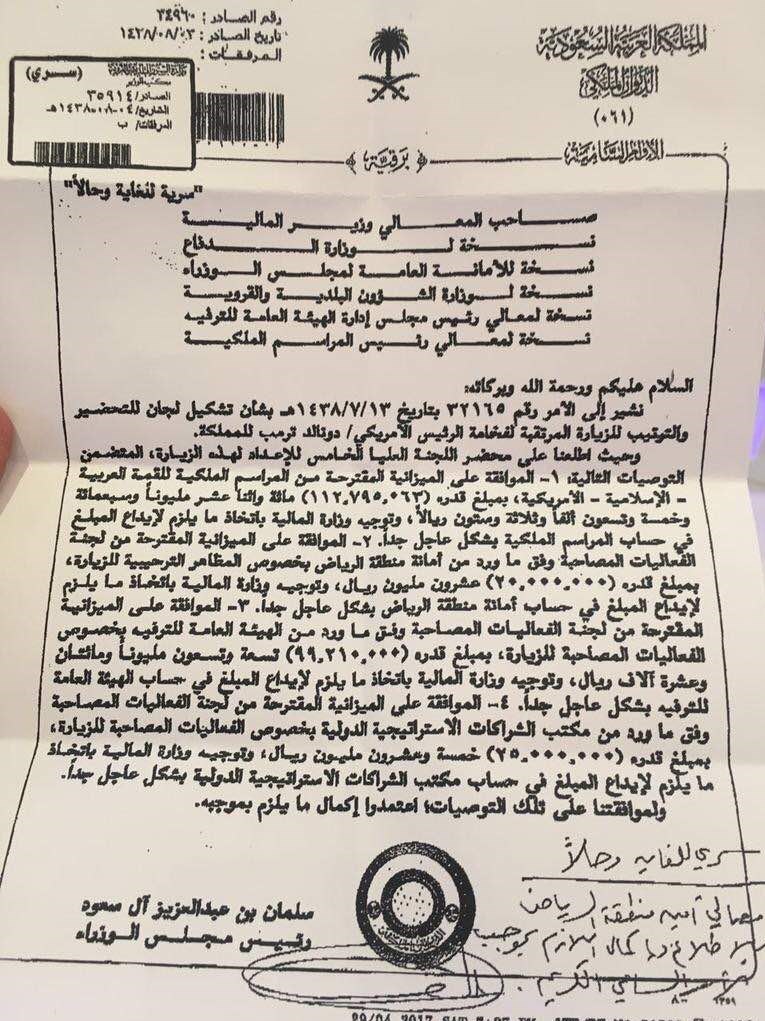 المملكة العربية السعودية
الديوان الملكي
(٠٦١)
الأوامر السامية
رقم الصادر : ٣٤٩٦٠
تاريخ الصادر : ١٤٣٨/٠٨/٠٣
المرفقات :
(سري)
مكتب الوزير
الصادر/ ٣٥٩١٤
التاريخ/ ٠٤-٠٨-١٤٣٨هـ
المرفقات/ ب
برقية
"سرية للغاية وحالاً"
صاحب المعالي وزير المالية
نسخة لوزارة الدفاع
نسخة للأمانة العامة لمجلس الوزراء
نسخة لوزارة الشؤون البلدية والقروية
نسخة لمعالي رئيس مجلس إدارة الهيئة العامة للترفيه
نسخة لمعالي رئيس المراسم الملكية
السلام عليكم ورحمة الله وبركاته:
نشير إلى الأمر رقم ٣٢١٦٥ بتاريخ ١٤٣٨/٧/١٣هـ بشأن تشكيل لجان للتحضير
والترتيب للزيارة المرتقبة لفخامة الرئيس الأمريكي/ دونالد ترمب للمملكة.
وحيث اطلعنا على محضر اللجنة العليا الخامس للإعداد لهذه الزيارة، المتضمن
التوصيات التالية: ١- الموافقة على الميزانية المقترحة من المراسم الملكية للقمة العربية
- الإسلامية - الأمريكية، بمبلغ قدره (١١٢,٧٩٥,٠٦٣) مائة واثنا عشر مليوناً وسبعمائة
وخمسة وتسعون ألفاً وثلاثة وستون ريالاً، وتوجيه وزارة المالية باتخاذ ما يلزم لإيداع المبلغ
في حساب المراسم الملكية بشكل عاجل جداً. ٢- الموافقة على الميزانية المقترحة من لجنة
الفعاليات المصاحبة وفق ما ورد من أمانة منطقة الرياض بخصوص المظاهر الترحيبية للزيارة،
بمبلغ قدره (٢٠,٠٠٠,٠٠٠) عشرون مليون ريال، وتوجيه وزارة المالية باتخاذ ما يلزم
لإيداع المبلغ في حساب أمانة منطقة الرياض بشكل عاجل جداً. ٣- الموافقة على الميزانية
المقترحة من لجنة الفعاليات المصاحبة وفق ما ورد من الهيئة العامة للترفيه بخصوص
الفعاليات المصاحبة للزيارة، بمبلغ قدره (٩٩,٢١٠,٠٠٠) تسعة وتسعون مليوناً ومائتان
وعشرة آلاف ريال، وتوجيه وزارة المالية باتخاذ ما يلزم لإيداع المبلغ في حساب الهيئة العامة
للترفيه بشكل عاجل جداً. ٤- الموافقة على الميزانية المقترحة من لجنة الفعاليات المصاحبة
وفق ما ورد من مكتب الشراكات الاستراتيجية الدولية بخصوص الفعاليات المصاحبة للزيارة،
بمبلغ قدره (٢٥,٠٠٠,٠٠٠) خمسة وعشرون مليون ريال، وتوجيه وزارة المالية باتخاذ
ما يلزم لإيداع المبلغ في حساب مكتب الشراكات الاستراتيجية الدولية بشكل عاجل جداً.
ولموافقتنا على تلك التوصيات؛ اعتمدوا إكمال ما يلزم بموجبه.
سلمان بن عبدالعزيز آل سعود
رئيس مجلس الوزراء
سري للغاية وحالاً
معالي أمين منطقة الرياض
للاطلاع وإكمال اللازم بموجب
الأمر السامي الكريم